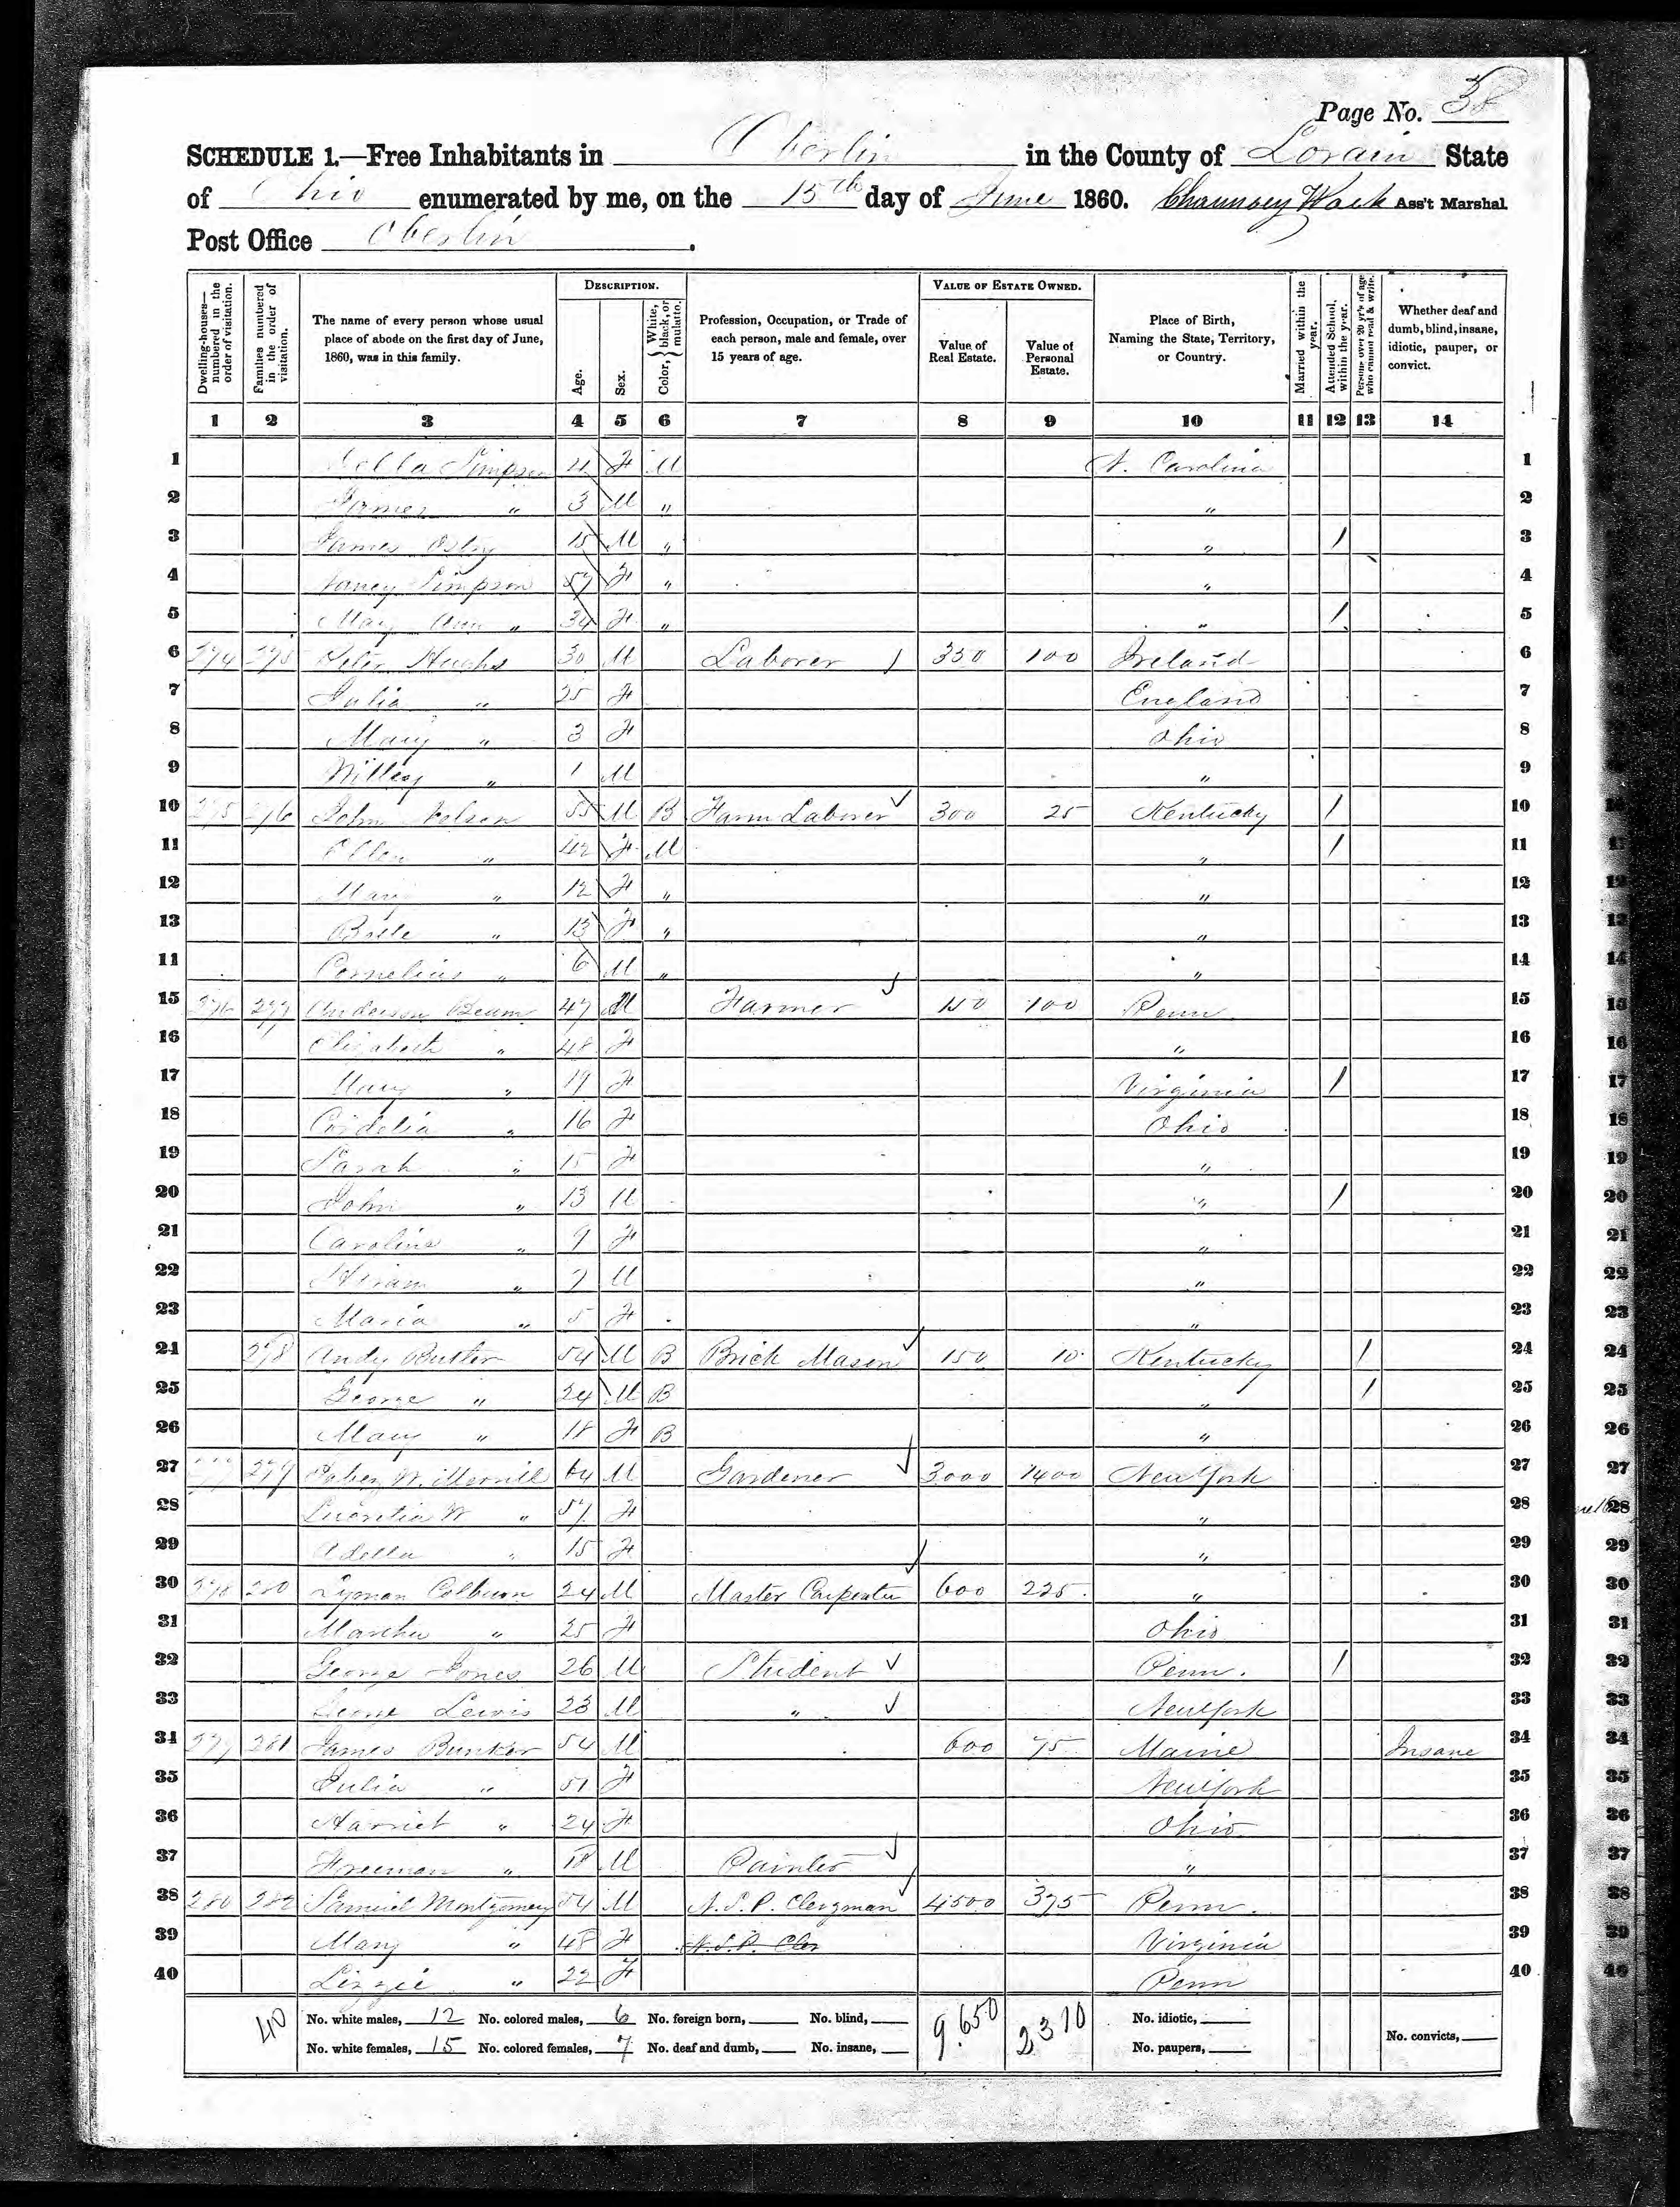 Page No. 58
SCHEDULE 1.—Free Inhabitants in Oberlin in the County of Lorain State
of Ohio enumerated by me, on the 15th day of June 1860. Chauncey Wack Ass't Marshal
Post Office Oberlin.
Dwelling-houses—numbered in the order of visitation.
Families numbered in the order of visitation.
The name of every person whose usual place of abode on the first day of June, 1860, was in this family.
DESCRIPTION.
Age.
Sex.
Color, White, black, or mulatto.
Profession, Occupation, or Trade of each person, male and female, over 15 years of age.
VALUE OF ESTATE OWNED.
Value of Real Estate.
Value of Personal Estate.
Place of Birth, Naming the State, Territory, or Country.
Married within the year.
Attended School within the year.
Persons over 20 yr's of age who cannot read & write.
Whether deaf and dumb, blind, insane, idiotic, pauper, or convict.
1 2 3 4 5 6 7 8 9 10 11 12 13 14
1 Simpson F M N. Carolina 1
2 " 3 M " " 2
3 James 15 M " " / 3
4 Nancy Simpson 57 F " " 4
5 Mary Ann " 34 F " " / 5
6 274 275 Peter Hughs 30 M Laborer 350 100 Ireland 6
7 Julia " 25 F England 7
8 Mary " 3 F Ohio 8
9 Willey " 1 M " 9
10 275 276 John Nelson 55 M B Farm Laborer 300 25 Kentucky / 10
11 Ellen " 42 F M " / 11
12 Mary " 12 F " " 12
13 Belle " 13 F " " 13
11 Cornelius " 6 M " " 14
15 276 277 Anderson Beum 47 M Farmer 150 100 Penn 15
16 Elizabeth " 48 F " 16
17 Mary " 19 F Virginia / 17
18 Cordelia " 16 F Ohio 18
19 Sarah " 15 F " 19
20 John " 13 M " / 20
21 Caroline " 9 F " 21
22 Hiram " 7 M " 22
23 Maria " 5 F " 23
24 278 Andy Butler 54 M B Brick Mason 150 10 Kentucky / 24
25 George " 24 M B " / 25
26 Mary " 18 F B " 26
27 277 279 W. Merrill 64 M Gardener 3000 1400 New York 27
28 Lucretia W " 57 F " 28
29 Adella " 15 F " 29
30 278 280 Lyman Colburn 24 M Master Carpenter 600 225 " 30
31 Martha " 25 F Ohio 31
32 George Jones 26 M Student Penn. / 32
33 George Lewis 23 M " New York 33
34 279 281 James Bunker 54 M 600 75 Maine Insane 34
35 Julia " 51 F New York 35
36 Harriet " 24 F Ohio 36
37 Freeman " 18 M Painter " 37
38 280 282 Samuel Montgomery 54 M N.S.P. Clergman 4500 375 Penn. 38
39 Mary " 48 F N.S.P. Cler Virginia 39
40 Lizzie " 22 F Penn 40
40 No. white males, 12 No. colored males, 6 No. foreign born, No. blind, 9.650 2310 No. idiotic,
No. white females, 15 No. colored females, 7 No. deaf and dumb, No. insane, No. paupers, No. convicts,